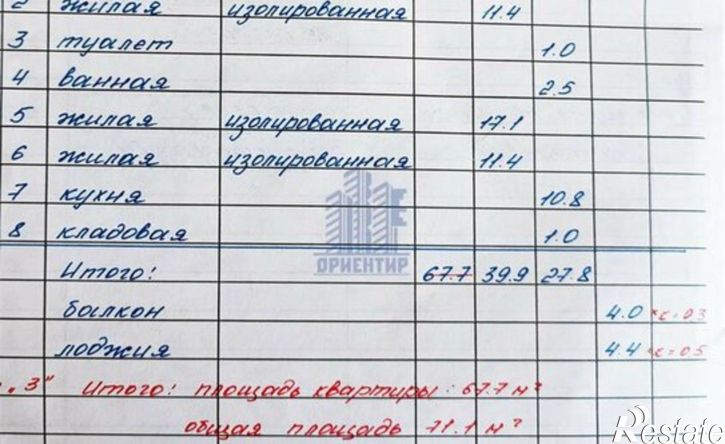 2 жилая изолированная 11.4
3 туалет 1.0
4 ванная 2.5
5 жилая изолированная 17.1
6 жилая изолированная 11.4
7 кухня 10.8
8 кладовая 1.0
Итого: 67.7 39.9 27.8
балкон 4.0 к=0.3
лоджия 4.4 к=0.5
"3" Итого: площадь квартиры: 67.7 м²
общая площадь 71.1 м²
ОРИЕНТИР
Restate